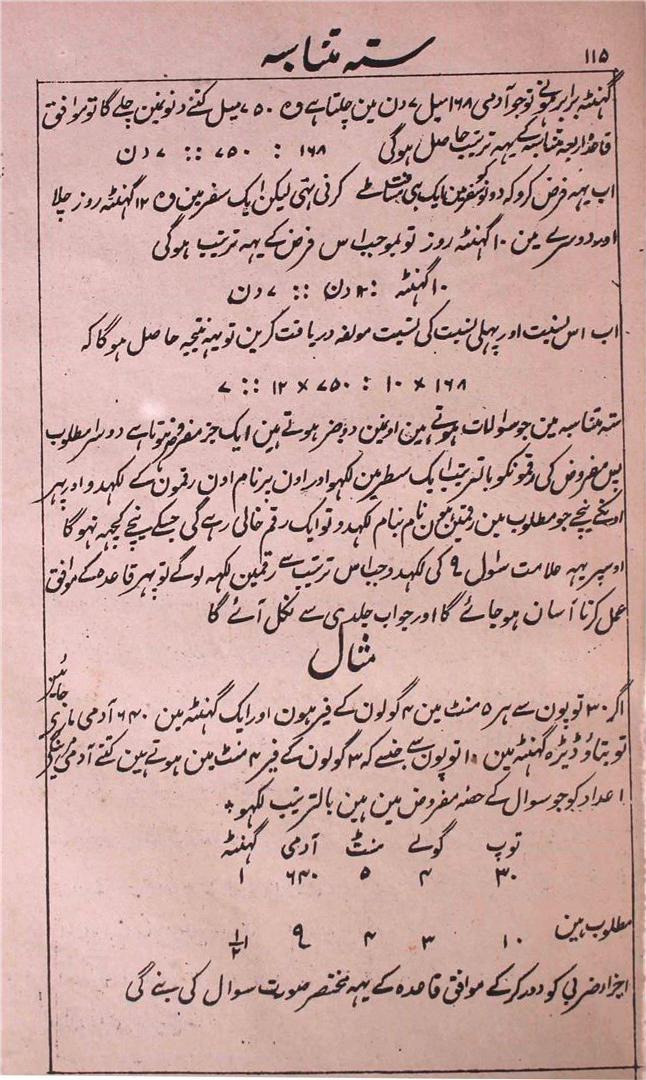 ۱۱۵
ستہ متناسبہ
گہنٹہ برابر ہونے توجو آدمی ۱۶۸ میل ۷ دن مین چلتا ہے وہ ۷۵۰ میل کتنے دنونمین چلے گا تو موافق
قاعدہ اربعہ متناسبہ کے یہہ ترتیب حاصل ہوگی ۱۶۸ : ۷۵۰ :: ۷ دن
اب یہہ فرض کرو کہ دونو سفر مین ایک ہی مسافت طے کرنی تہی لیکن ایک سفر مین وہ ۱۲ گہنٹہ روز چلا
اور دوسرے مین ۱۰ گہنٹہ روز تو بموجب اس فرض کے یہہ ترتیب ہوگی
۱۰ گہنٹہ : ۱۲ دن :: ۷ دن
اب اس نسبت اور پہلی نسبت کی نسبت مولفہ دریافت کرین تو یہہ نتیجہ حاصل ہوگا کہ
۱۶۸ × ۱۰ : ۷۵۰ × ۱۲ :: ۷
ستہ متناسبہ مین جو سوالات ہوتے ہین اونمین دو جز ہوتے ہین ایک جز مفروض ہوتا ہے دوسرا مطلوب
پس مفروض کی رقمونکو بالترتیب ایک سطر مین لکہو اور اون پر نام اون رقمون کے لکہدو اور پہر
اونکے نیچے جو مطلوب مین رقمین ہون نام بنام لکہدو تو ایک رقم خالی رہے گی جسکے نیچے کچہہ نہوگا
اوسپر یہہ علامت سوال ؟ کی لکہدو جب اس ترتیب سے رقمین لکہہ لوگے تو پہر قاعدہ کے موافق
عمل کرنا آسان ہوجائے گا اور جواب جلدی سے نکل آئے گا
مثال
اگر ۳۰ توپون سے ہر ۵ منٹ مین ۴ گولون کے فیر ہون اور ایک گہنٹہ مین ۶۴۰ آدمی مارے جائین
تو بتاؤ ڈیڑہ گہنٹہ مین ۱۰ توپون سے جنسے کہ ۳ گولون کے فیر ۴ منٹ مین ہوتے ہین کتنے آدمی
اعداد کو جو سوال کے حصہ مفروض مین ہین بالترتیب لکہو
توپ گولے منٹ آدمی گہنٹہ
۳۰ ۴ ۵ ۶۴۰ ۱
مطلوب ہین ۱۰ ۳ ۴ ؟ ۱ ۱/۲
اجزاء ضربی کو دور کرکے موافق قاعدہ کے یہہ مختصر صورت سوال کی بنے گی